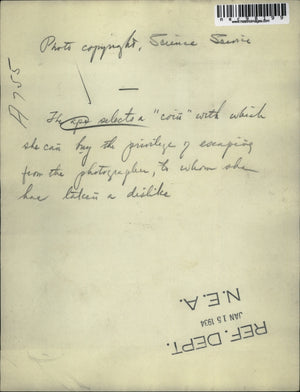 Photo copyright, Science Service
A755
The ape selects a "coin" with which
she can buy the privilege of escaping
from the photographer, to whom she
has taken a dislike
REF. DEPT.
JAN 15 1934
N.E.A.